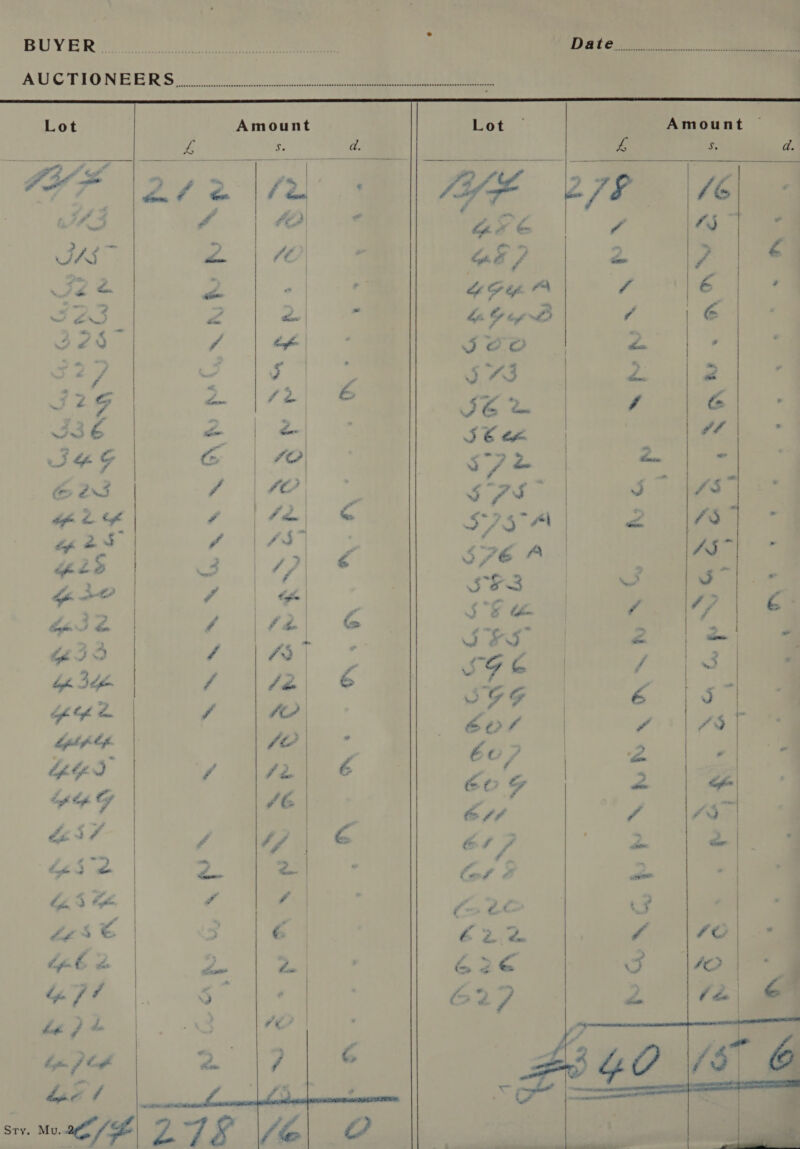 BUYER Date
AUCTIONEERS
Lot Amount
£ s. d.
B/F 212 12 .
313 1 10 .
315 2 10 .
322 2 . .
323 2 2 .
325 1 4 .
327 3 5 .
329 2 12 6
336 2 2 .
349 6 10
623 1 10 .
424 1 12 6
425 1 15 .
428 3 17 6
430 1 4 .
432 1 12 6
433 1 15 .
434 1 12 6
442 1 10 .
444 10 .
445 1 12 6
449 16
451 1 17 6
452 2 2 .
454 1 1 .
456 3 6 .
462 2 2 .
471 5 . .
472 3 10 .
474 2 7 6
481 1 15 .
Sty. Mu. C/F 278 16 0
Lot Amount
£ s. d.
B/F 278 16 .
486 1 15 .
487 2 7 6
494 A 1 6 .
494 B 1 6 .
500 2 . .
513 2 2 .
562 1 6 .
564 11 .
572 2 .
575 5 15 .
575 A 2 15 .
576 A 15 .
583 3 5 .
584 1 17 6
585 2 2 .
596 1 3
599 6 5
601 1 15
607 2 . .
609 2 4
611 1 15
617 2 2
618 2 .
620 3
622 1 10 .
626 3 10 .
627 2 12 6
£340 15 6